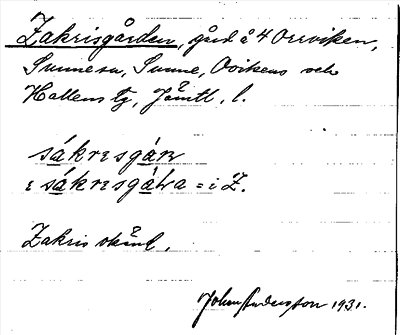 Zakrisgården, gård å 4 Orrviken,
Sunne sn, Sunne, Ovikens och
Hallens tg, Jämtl. l.
sákrɪsgáɴ
ɪ sákrɪsgáɫɴa = i Z.
Zakris okänd.
John Andersson 1931.